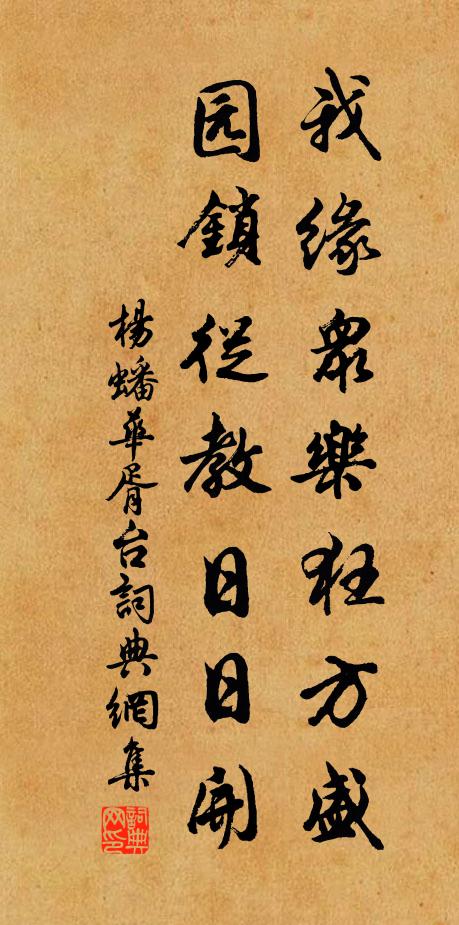 我缘眾樂狂方盛
园鎖從教日日開
楊蟠華胥台詞典網集
詞典網印